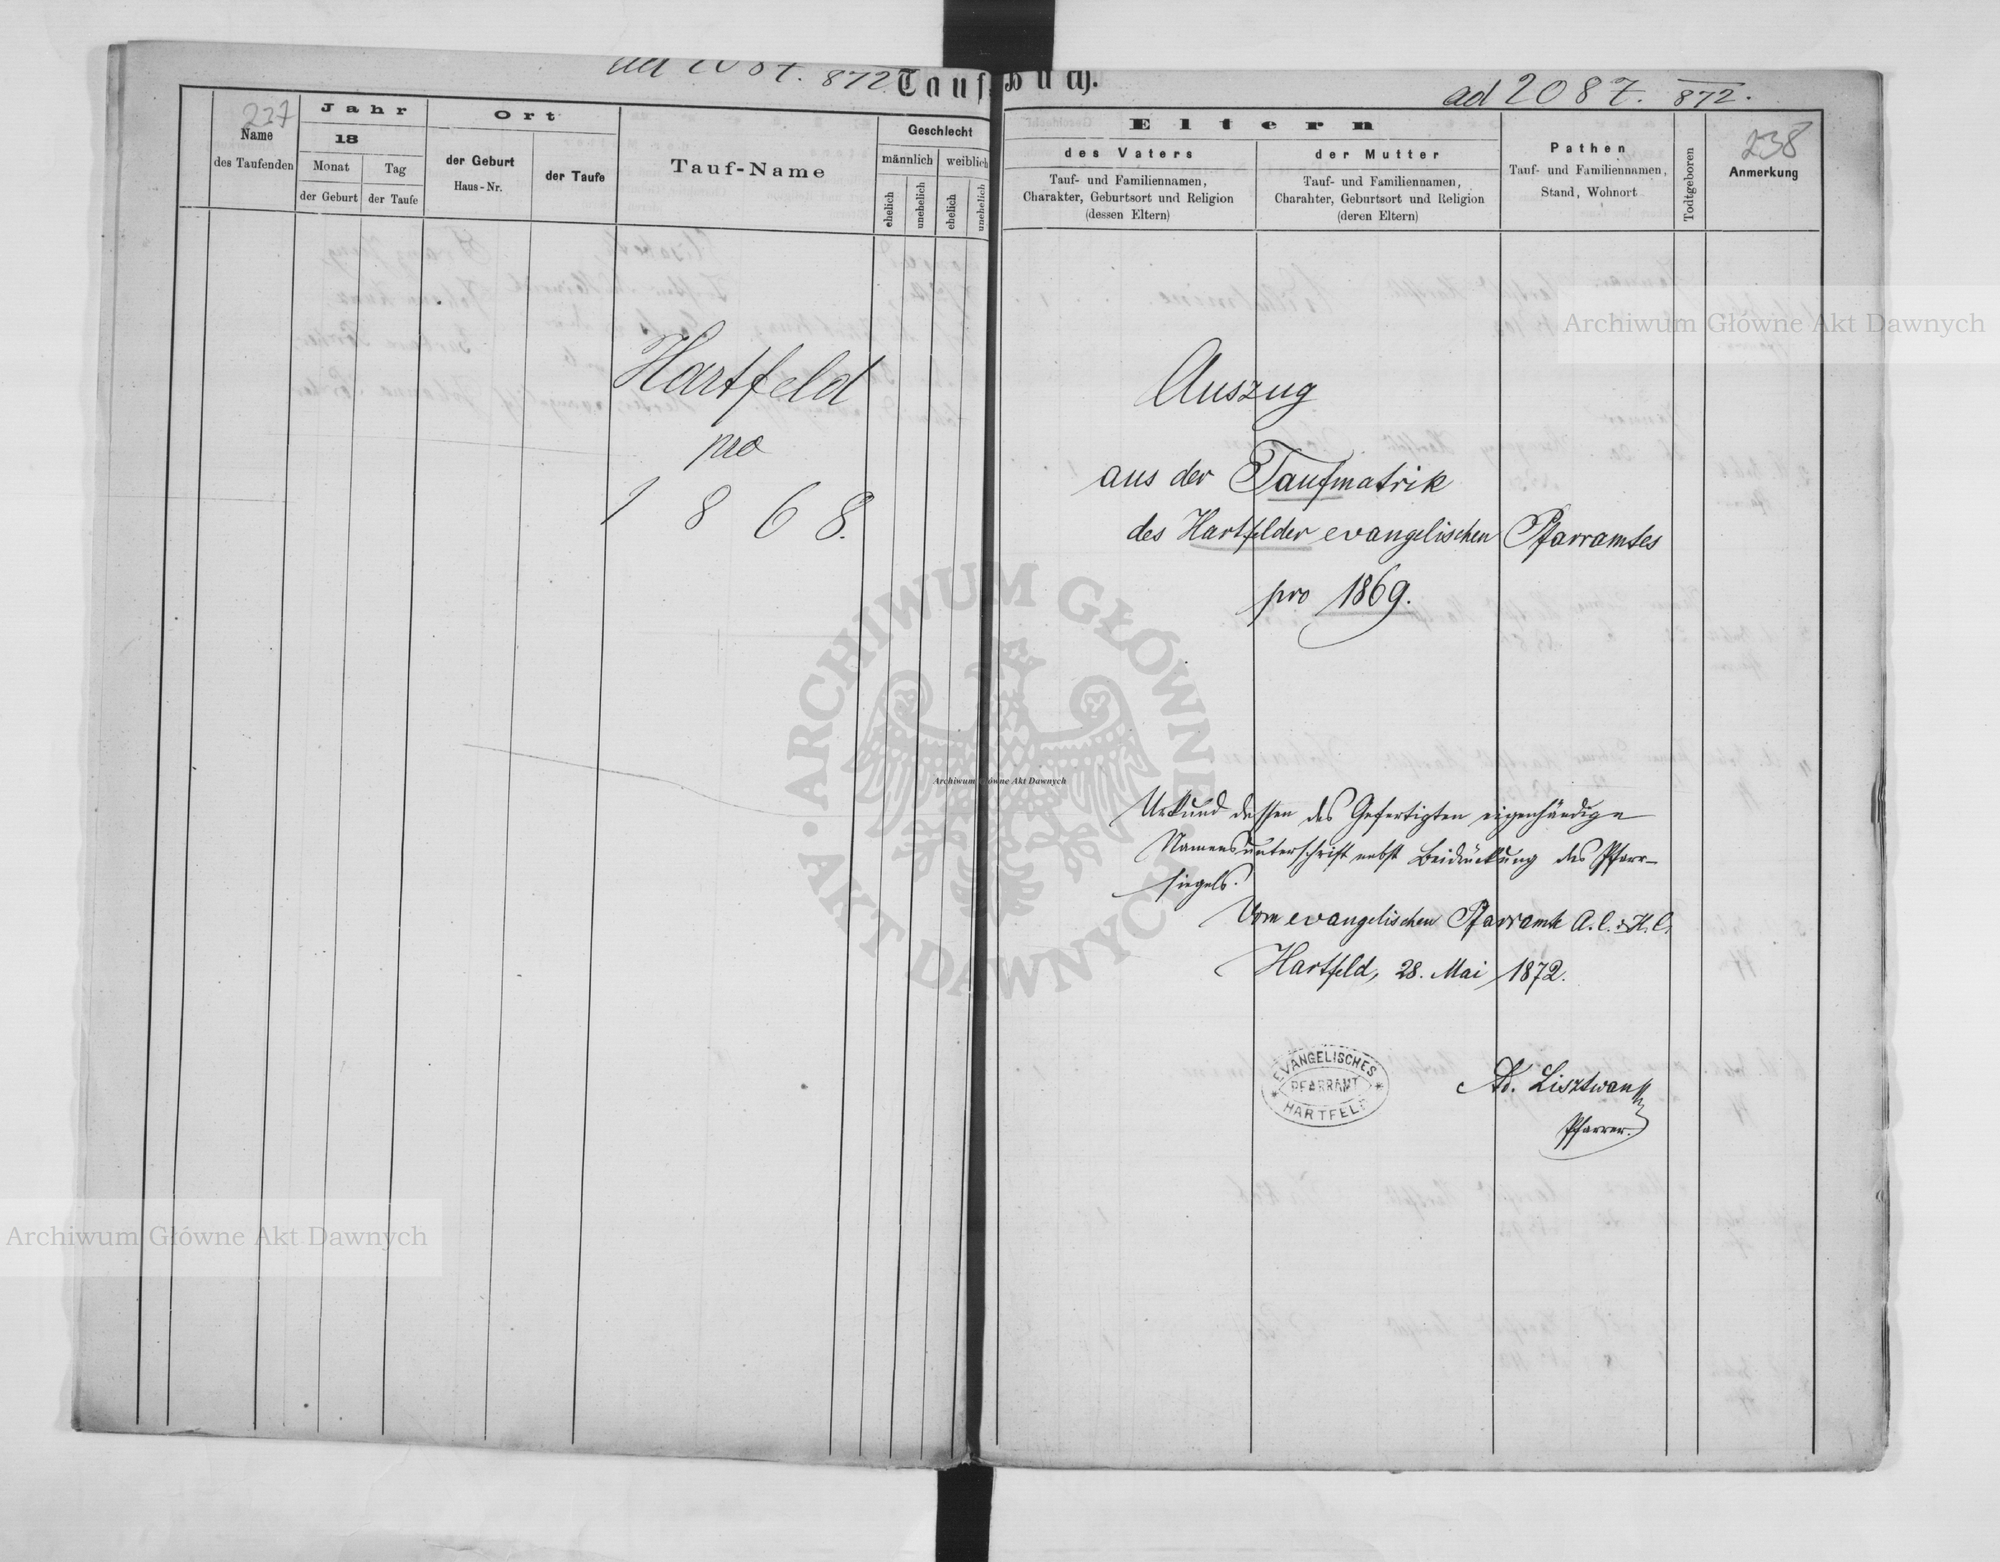 ad 2087. 872.
Tauf-Buch.
ad 2087. 872.
237
Name
des Taufenden
Jahr
18
Monat
Tag
der Geburt
der Taufe
Ort
der Geburt
Haus-Nr.
der Taufe
Tauf-Name
Geschlecht
männlich
weiblich
ehelich
unehelich
ehelich
unehelich
Hartfeld
pro
1868.
Eltern
des Vaters
Tauf- und Familiennamen,
Charakter, Geburtsort und Religion
(dessen Eltern)
der Mutter
Tauf- und Familiennamen,
Charahter, Geburtsort und Religion
(deren Eltern)
Pathen
Tauf- und Familiennamen,
Stand, Wohnort
Todtgeboren
238
Anmerkung
Auszug
aus der Taufmatrik
des Hartfelder evangelischen Pfarramtes
pro 1869.
Urkund dessen des Gefertigten eigenhändige
Namensunterschrift nebst Beidrückung des Pfarr-
siegels.
Vom evangelischen Pfarramte A.C. & H.C.
Hartfeld, 28. Mai 1872.
EVANGELISCHES
PFARRAMT
HARTFELD
Ad. Lisztwan
Pfarrer.
Archiwum Główne Akt Dawnych
ARCHIWUM GŁÓWNE AKT DAWNYCH
Archiwum Główne Akt Dawnych
Archiwum Główne Akt Dawnych